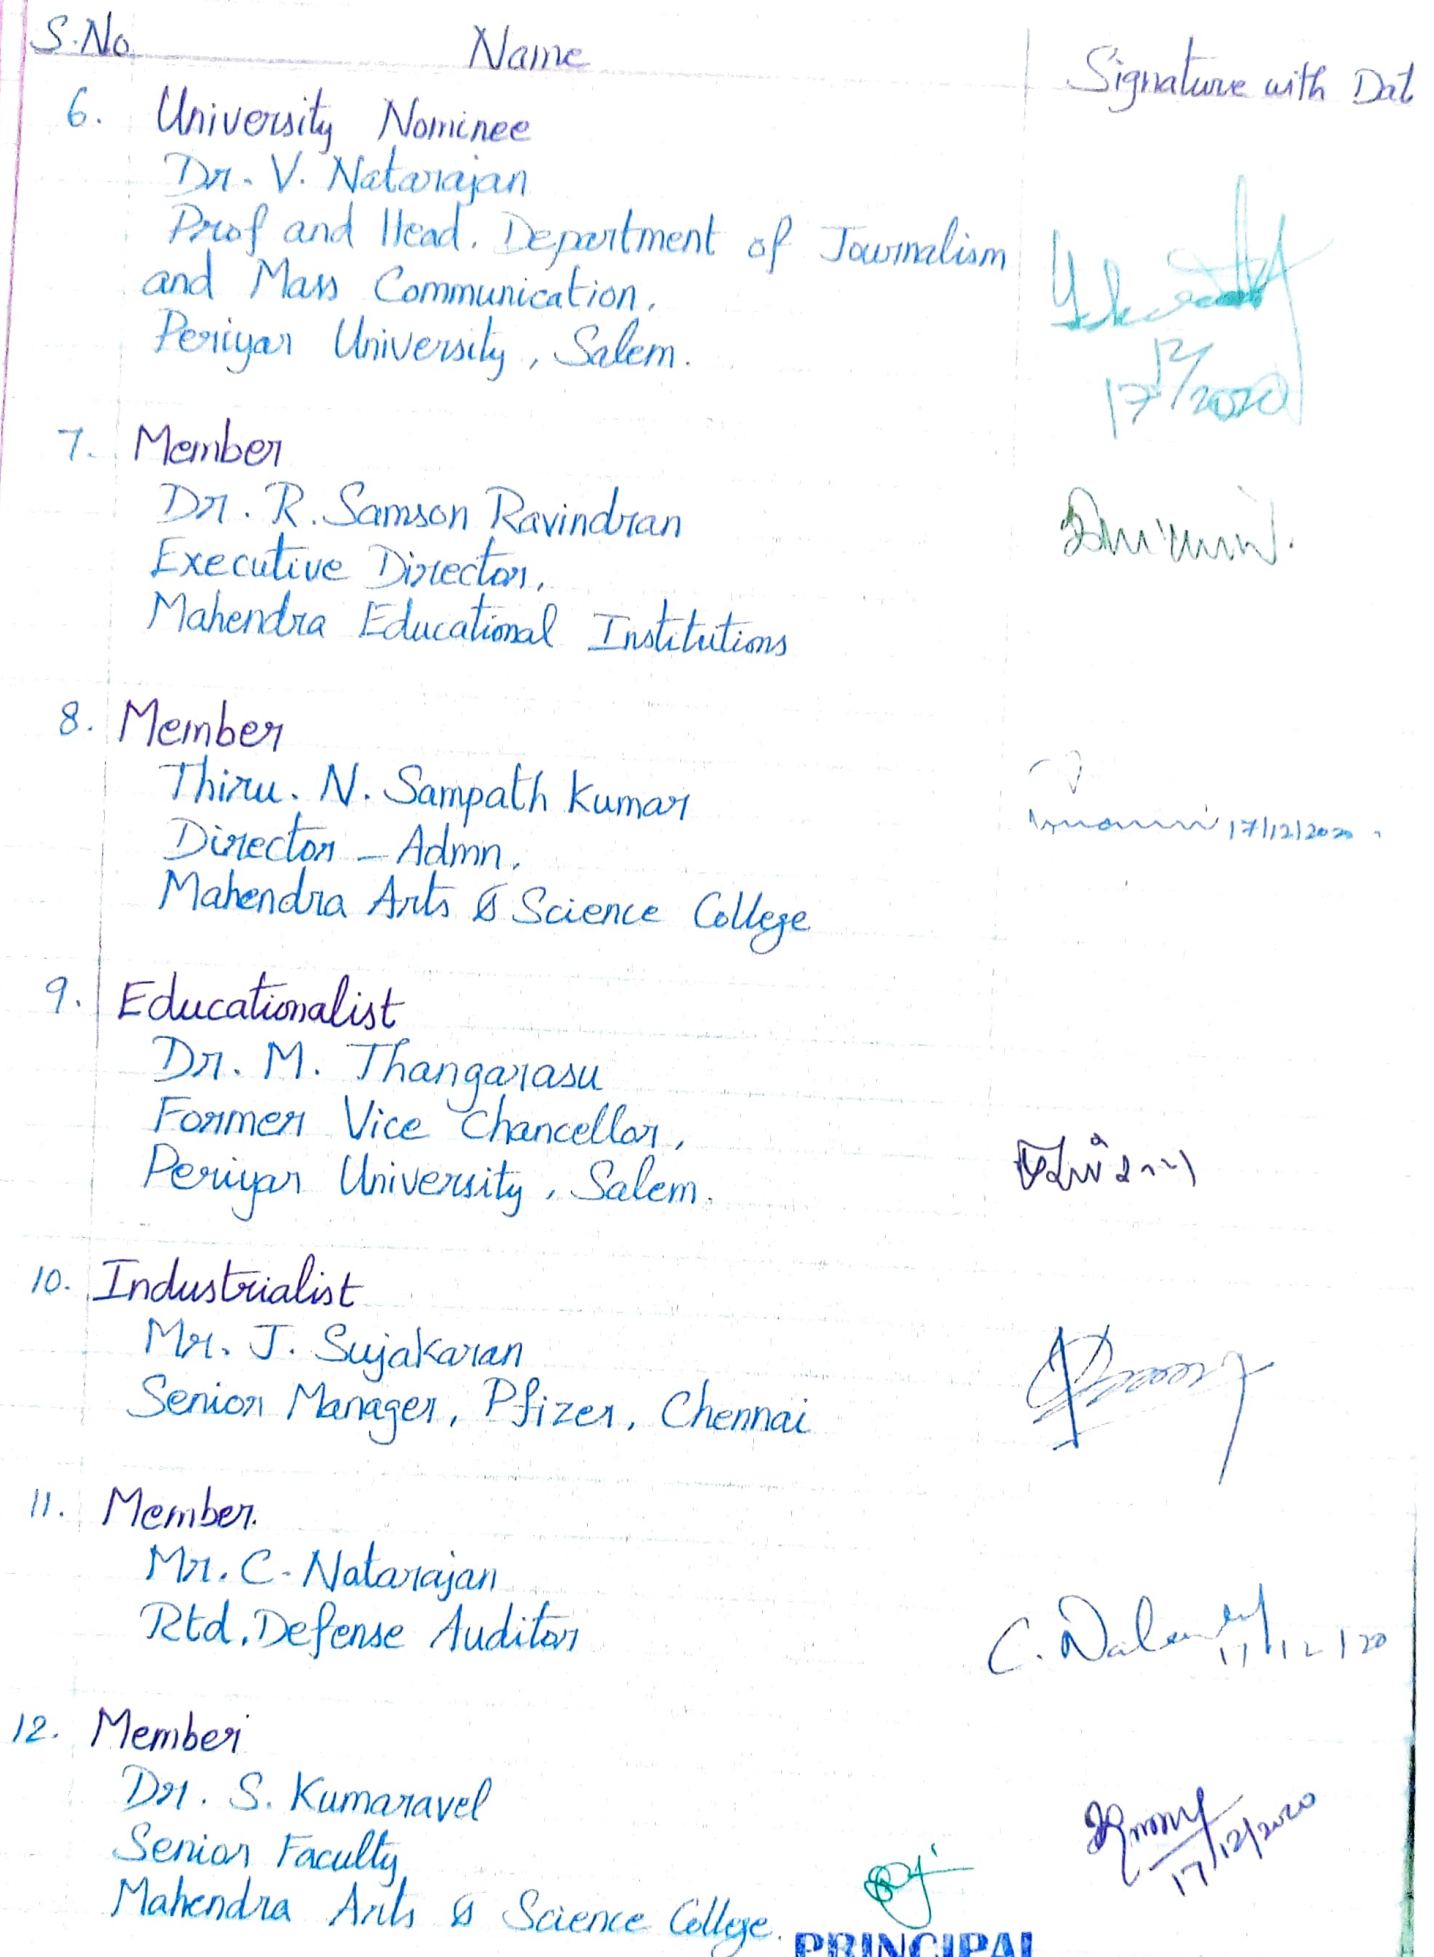 S.No Name Signature with Dat
6. University Nominee
Dr. V. Natarajan
Prof and Head, Department of Journalism
and Mass Communication,
Periyar University, Salem.
17/12/2020
7. Member
Dr. R. Samson Ravindran
Executive Director,
Mahendra Educational Institutions
8. Member
Thiru. N. Sampath Kumar
Director - Admn,
17/12/2020
Mahendra Arts & Science College
9. Educationalist
Dr. M. Thangarasu
Former Vice Chancellor,
Periyar University, Salem.
10. Industrialist
Mr. J. Sujakaran
Senior Manager, Pfizer, Chennai
11. Member
Mr. C. Natarajan
Rtd. Defense Auditor
C. 17/12/20
12. Member
Dr. S. Kumaravel
Senior Faculty
17/12/2020
Mahendra Arts & Science College.
PRINCIPAL